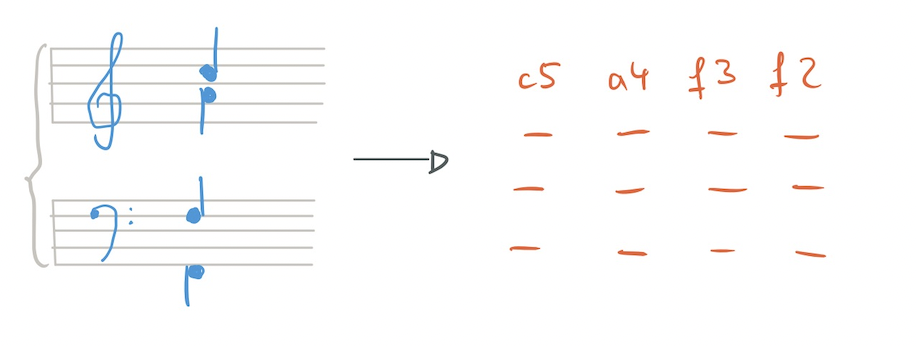 c5 a4 f3 f2
— — — —
— — — —
— — — —